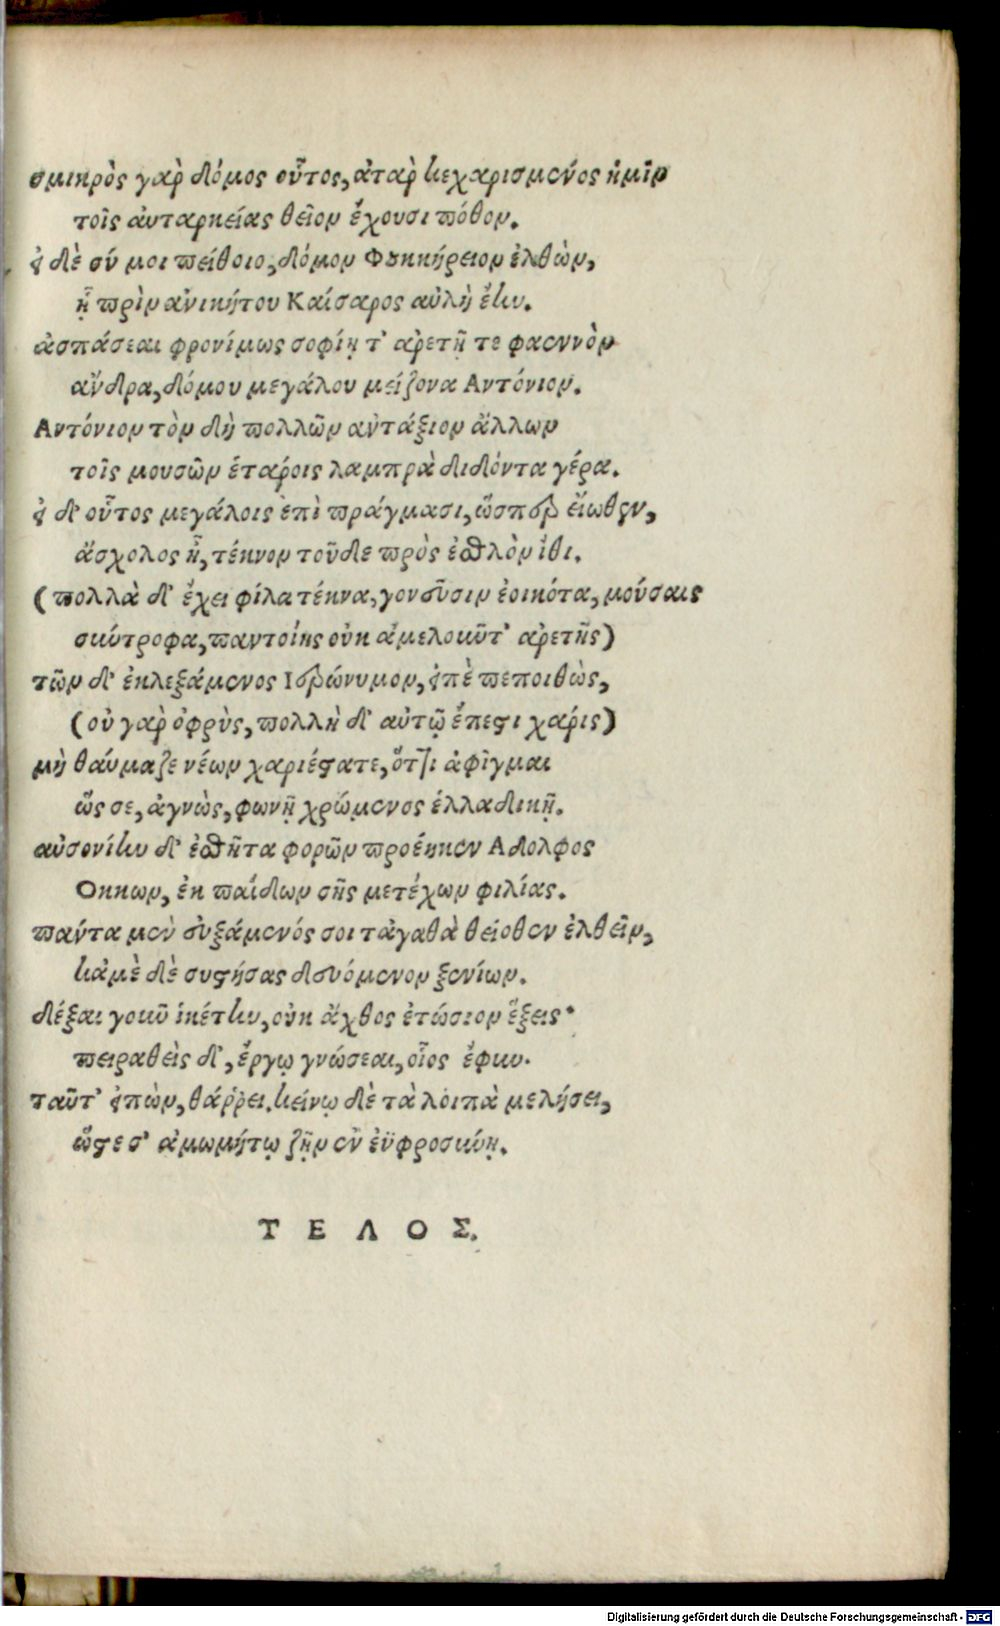 σμικρὸς γὰρ δόμος οὗτος, ἀτὰρ κεχαρισμένος ἡμῖν
τοῖς ἀυταρκείας θεῖον ἔχουσι πόθον.
εἰ δὲ σύ μοι πείθοιο, δόμον Φουκκήρειον ἐλθὼν,
ᾗ πρὶν ἀνικήτου Καίσαρος αὐλὴ ἔην.
ἀσπάσεαι φρονίμως σοφίῃ τ' ἀρετῇ τε φαεννὸν
ἄνδρα, δόμου μεγάλου μείζονα Αντόνιον.
Αντόνιον τὸν δὴ πολλῶν αὐτάξιον ἄλλων
τοῖς μουσῶν ἑτάροις λαμπρὰ διδόντα γέρα.
εἰ δ' οὗτος μεγάλοις ἐπὶ πράγμασι, ὥσπερ εἴωθεν,
ἄσχολος ᾖ, τέκνον τοῦδε πρὸς ἐσθλὸν ἴθι.
(πολλὰ δ' ἔχει φίλα τέκνα, γονεῦσιν ἐοικότα, μούσαις
σύντροφα, παντοίης οὐκ ἀμελοῦντ' ἀρετῆς)
τῶν δ' ἐκλεξάμενος Ιερώνυμον, εἰπὲ πεποιθὼς,
(οὐ γὰρ ὀφρὺς, πολλὴ δ' αὐτῷ ἔπεστι χάρις)
μὴ θάυμαζε νέων χαριέστατε, ὅττι ἀφῖγμαι
ὥς σε, ἀγνὼς, φωνῇ χρώμενος ἑλλαδικῇ.
αὐσονίην δ' ἐσθῆτα φορῶν προέηκεν Αδολφος
Οκκων, ἐκ παίδων σῆς μετέχων φιλίας.
πάντα μὲν εὐξάμενός σοι τἀγαθὰ θειόθεν ἐλθεῖν,
κἀμὲ δὲ συστήσας δευόμενον ξενίων.
δέξαι γοῦν ἱκέτην, οὐκ ἄχθος ἐτώσιον ἕξεις·
πειραθεὶς δ', ἔργῳ γνώσεαι, οἷος ἔφυν.
ταῦτ' εἰπὼν, θάῤῥει. κείνῳ δὲ τὰ λοιπὰ μελήσει,
ὥστε σ' ἀμωμήτῳ ζῇν ἐν ἐϋφροσύνῃ.
ΤΕΛΟΣ.
Digitalisierung gefördert durch die Deutsche Forschungsgemeinschaft - DFG